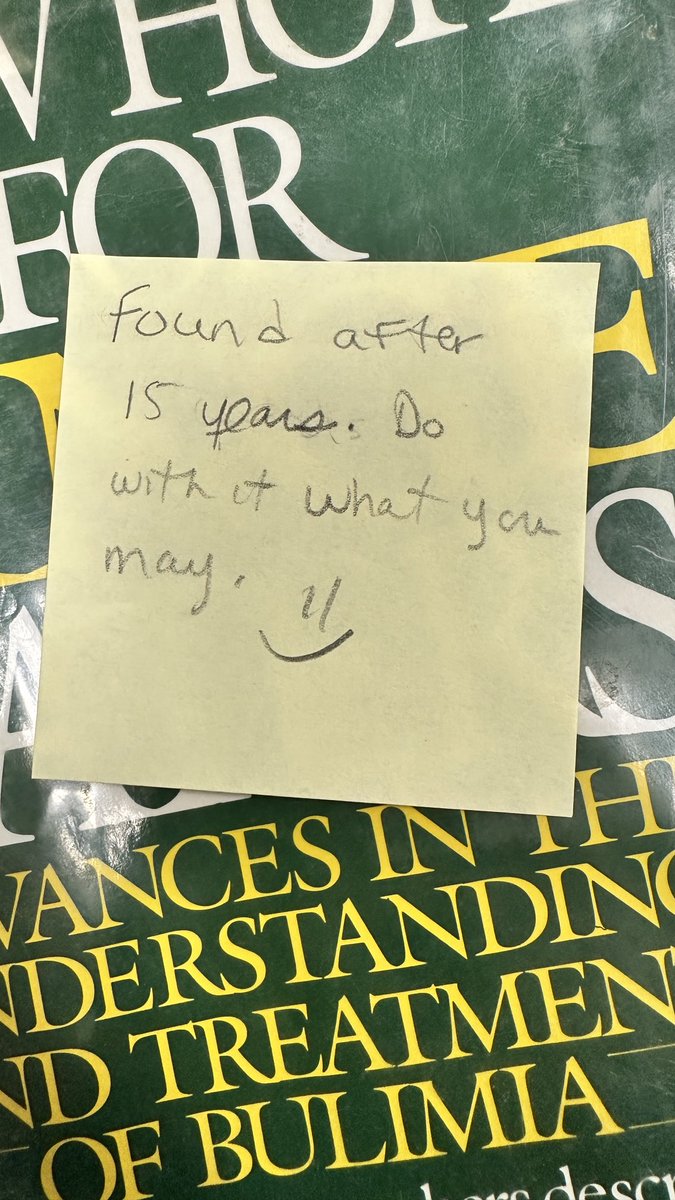 HOPE
FOR
Found after
15 years. Do
with it what you
may.
VANCES IN TH
NDERSTANDING
ND TREATMEN
OF BULIMIA
descr